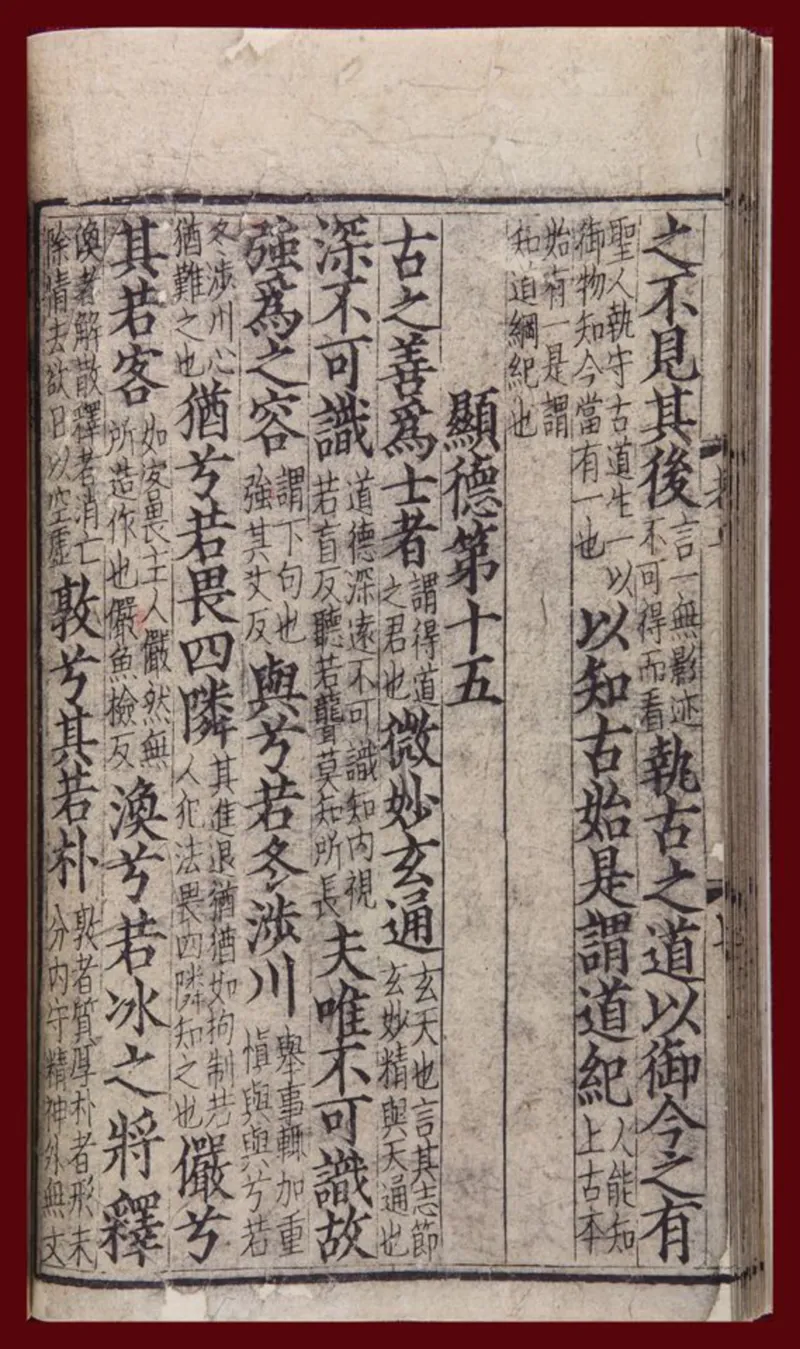 之不見其後言一無影迹不可得而看執古之道以御今之有
聖人執守古道生一以御物知今當有一也以知古始是謂道紀人能知上古本
始有一是謂知道綱紀也
顯德第十五
古之善爲士者謂得道之君也微妙玄通玄天也言其志節玄妙精與天通也
深不可識道德深遠不可識知内視若盲反聽若聾莫知所長夫唯不可識故
強爲之容謂下句也強其艾反與兮若冬涉川舉事輙加重慎與與兮若
冬涉川心猶難之也猶兮若畏四隣其進退猶猶如拘制若人犯法畏四隣知之也儼兮
其若客如客畏主人儼然無所造作也儼魚檢反渙兮若冰之將釋
渙者解散釋者消亡除情去欲日以空虛敦兮其若朴敦者質厚朴者形未分内守精神外無文